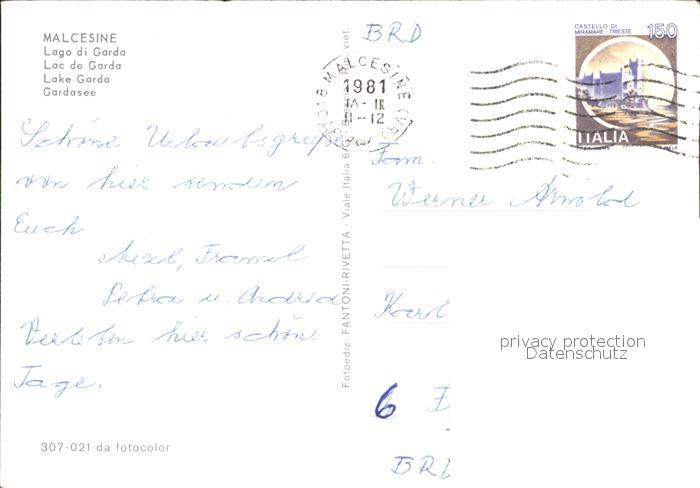 MALCESINE
Lago di Garda
Lac de Garda
Lake Garda
Gardasee
Schöne Urlaubsgrüße
von hier senden
Euch
Franzl
Petra u. Andrea
Verleben hier schöne
Tage.
307-021 da fotocolor
Fotoediz. FANTONI-RIVETTA - Viale Italia 6
viet.
BRD
MALCESINE (VR)
1981
11-12
CASTELLO DI
MIRAMARE - TRIESTE
150
ITALIA
Fam.
Werner Arnold
Karl
6
BRD
privacy protection
Datenschutz